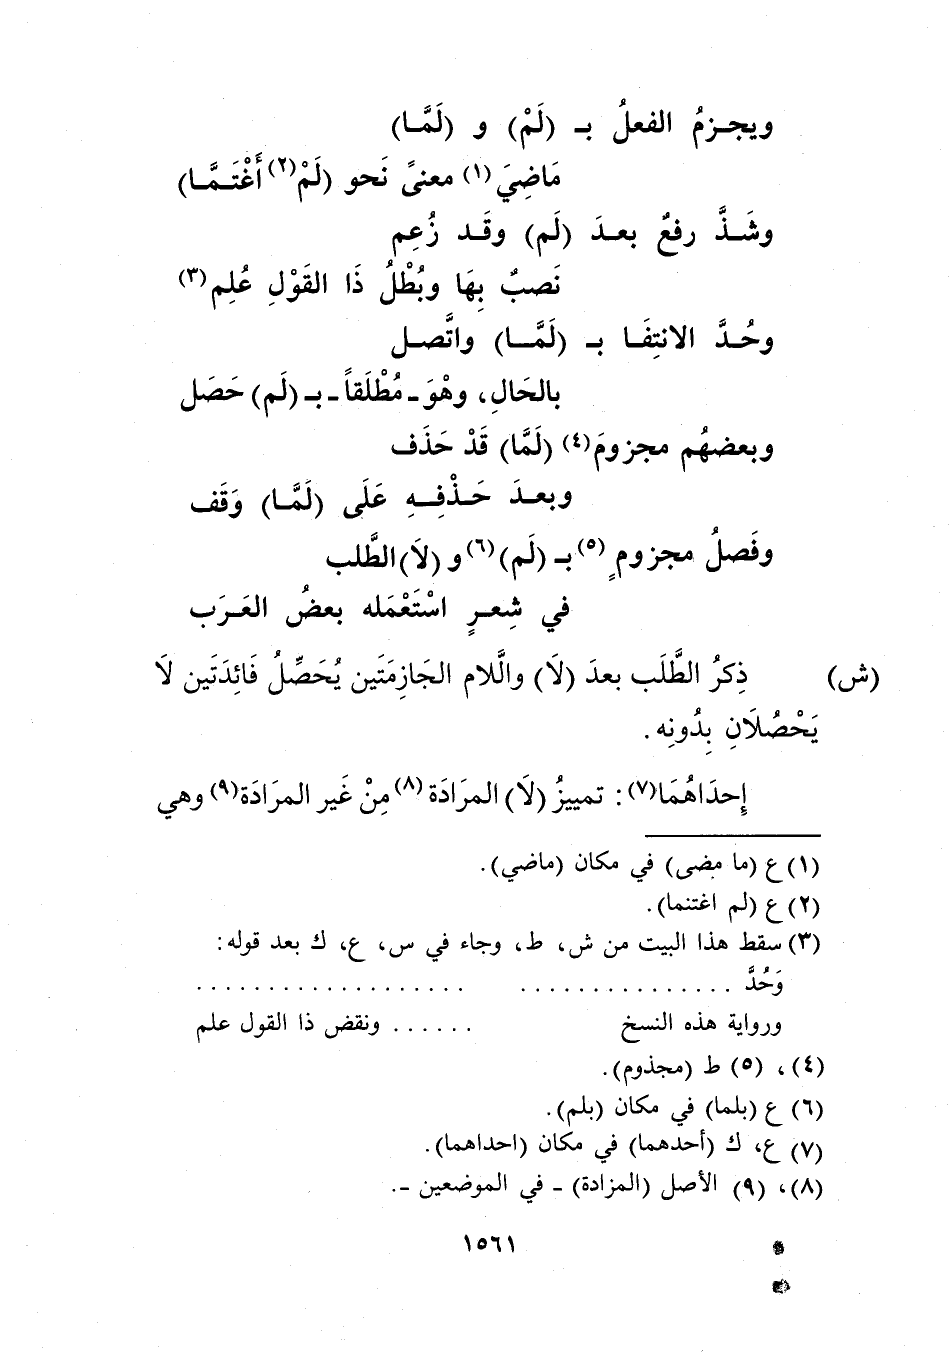 ويجـزمُ الفعلُ بـ (لَمْ) و (لَمَّـا)
مَاضِيَ(١) معنىً نَحو (لَمْ(٢) أَغْتَـمَّـا)
وشَـذَّ رفعٌ بعـدَ (لَم) وقَـد زُعِم
نَصبٌ بِهَا وبُطْلُ ذَا القَوْلِ عُلِم(٣)
وحُـدَّ الانتِفَـا بـ (لَمَّــا) واتَّصـل
بالحَالِ، وهْوَ ـ مُطْلَقاً ـ بـ (لَم) حَصَل
وبعضهُم مجزومَ(٤) (لَمَّا) قَدْ حَذَف
وبعـدَ حَـذْفِـهِ عَلَى (لَمَّـا) وَقَف
وفَصلُ مجزومٍ(٥) بـ (لَم)(٦) و (لاَ) الطَّلب
في شِعـرٍ اسْتَعْمَله بعضُ العَـرَب
(ش) ذِكرُ الطَّلَب بعدَ (لَا) والَّلام الجَازِمَتَين يُحَصِّلُ فَائِدَتَين لَا
يَحْصُلاَنِ بِدُونِه .
إِحدَاهُمَا(٧) : تمييزُ (لَا) المرَادَة(٨) مِنْ غَير المرَادَة(٩) وهي
(١) ع (ما مضى) في مكان (ماضي).
(٢) ع (لم اغتنما).
(٣) سقط هذا البيت من ش، ط، وجاء في س، ع، ك بعد قوله:
وَحُدَّ . . . . . . . . . . . . . . . . . . . . . . . . . . . . . . . . . .
ورواية هذه النسخ . . . . . . ونقض ذا القول علم
(٤)، (٥) ط (مجذوم).
(٦) ع (بلما) في مكان (بلم).
(٧) ع، ك (أحدهما) في مكان (احداهما).
(٨)، (٩) الأصل (المزادة) ـ في الموضعين ـ.
١٥٦١